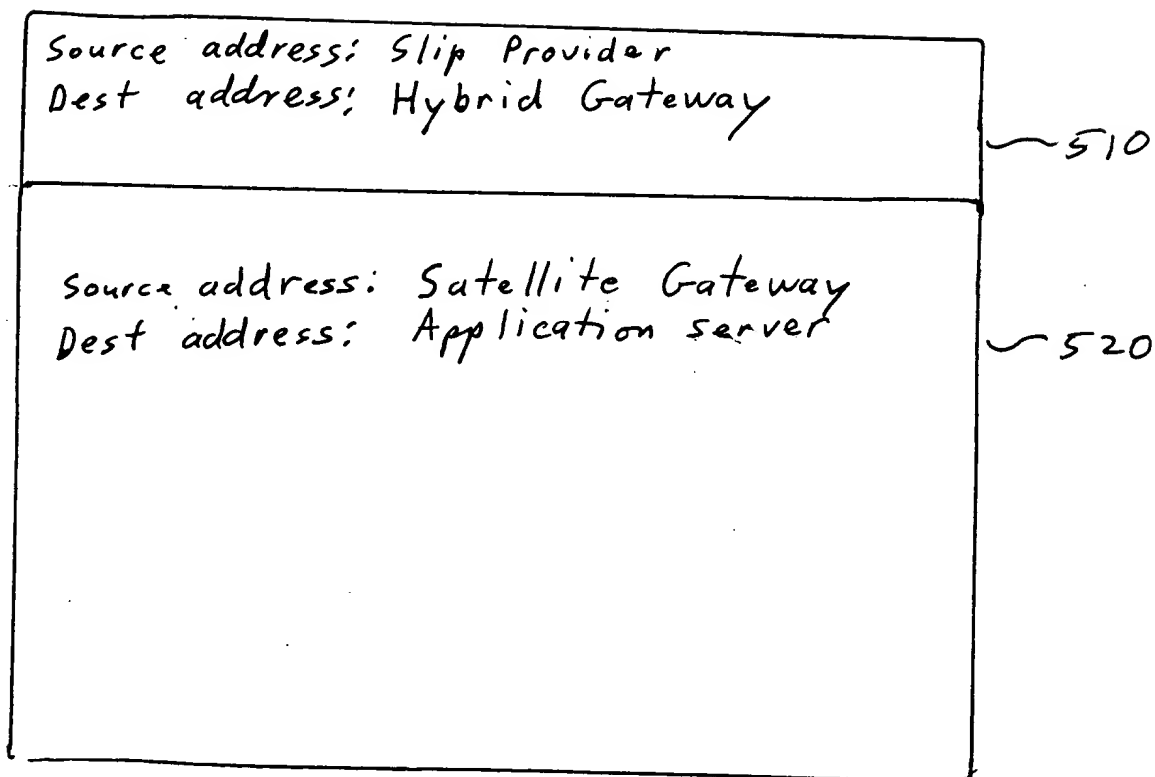 Source address: Slip Provider
Dest address: Hybrid Gateway
510
Source address: Satellite Gateway
Dest address: Application server
520